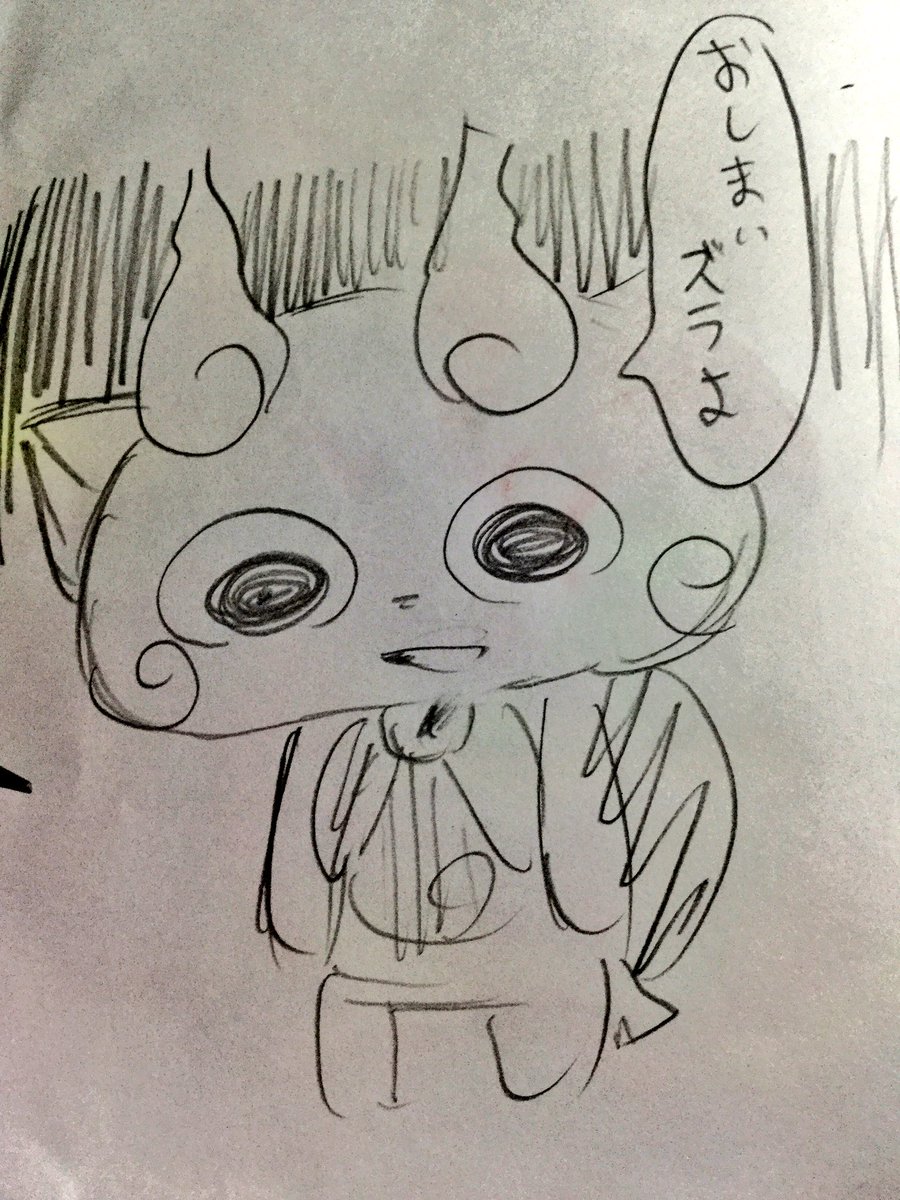 おしまい
ズラよ